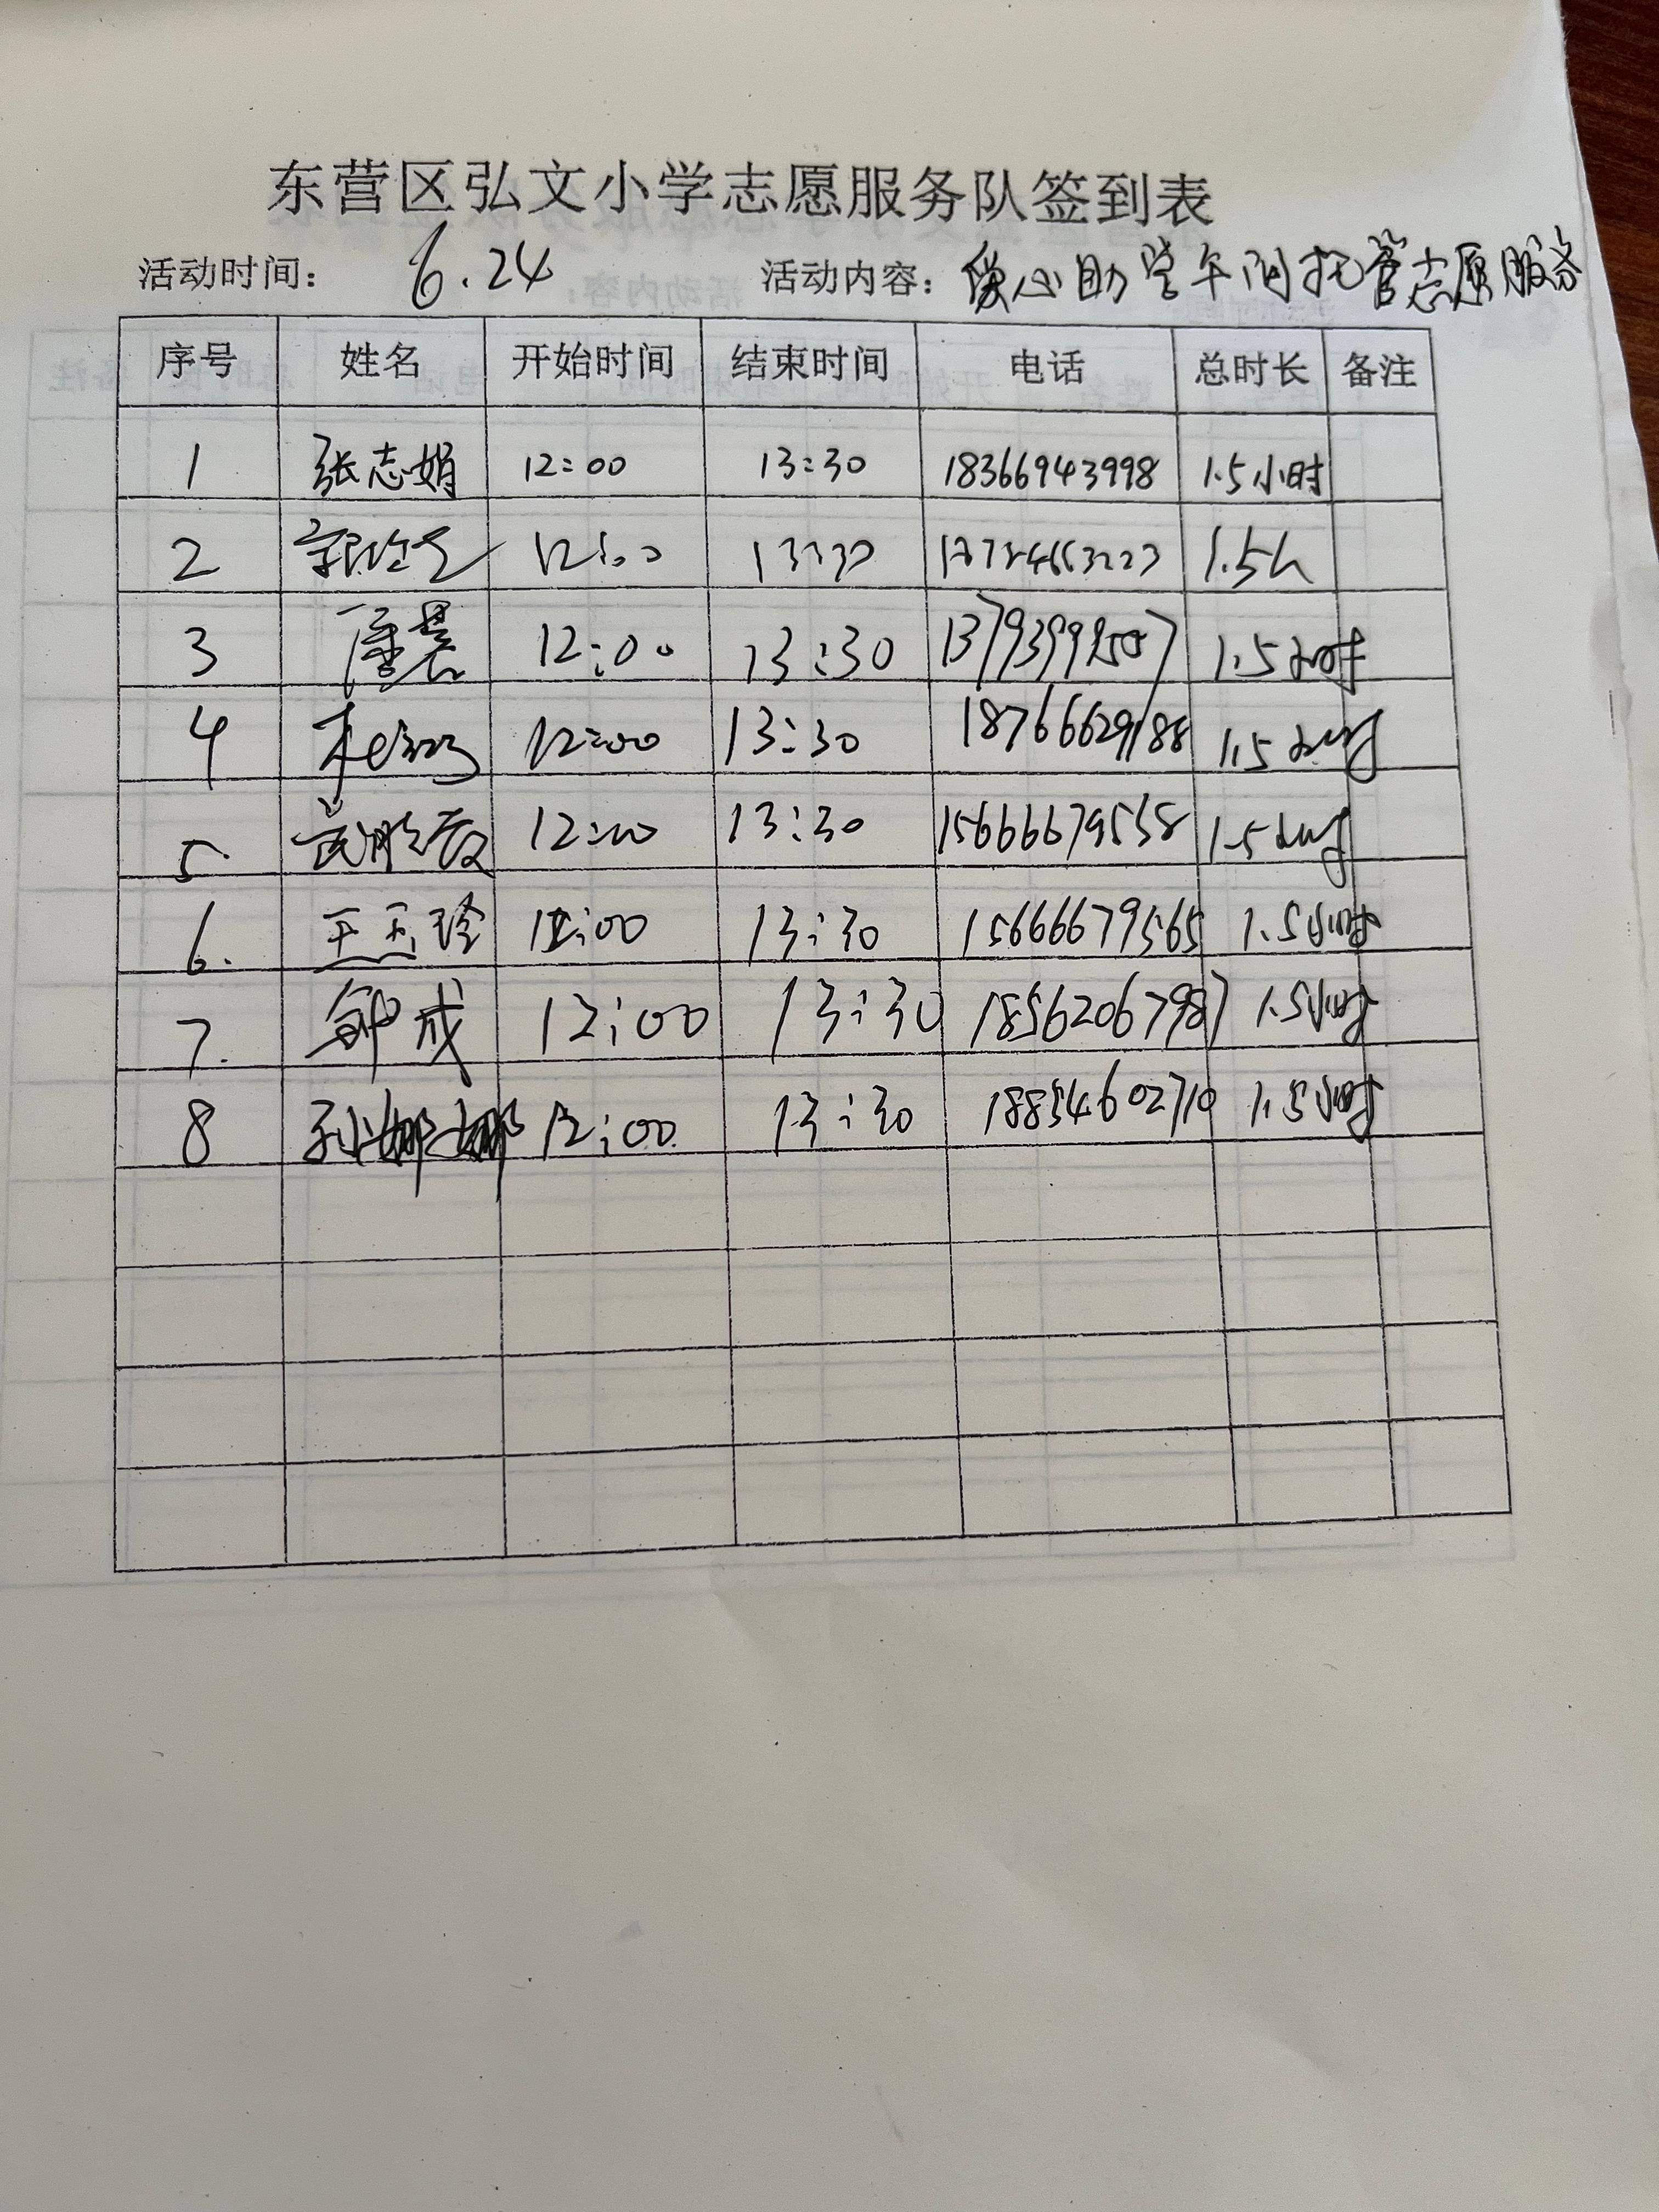 东营区弘文小学志愿服务队签到表
活动时间： 6.24 活动内容：暖心助学午间托管志愿服务
序号 姓名 开始时间 结束时间 电话 总时长 备注
1 张志娟 12:00 13:30 18366943998 1.5小时
2 12:00 13:30 1.5h
3 12:00 13:30 1.5小时
4 12:00 13:30 18766629188 1.5小时
5. 12:00 13:30 15666679558 1.5小时
6. 王玉玲 12:00 13:30 15666679565 1.5小时
7. 12:00 13:30 18562067987 1.5小时
8 孙娜娜 12:00 13:30 18854602710 1.5小时